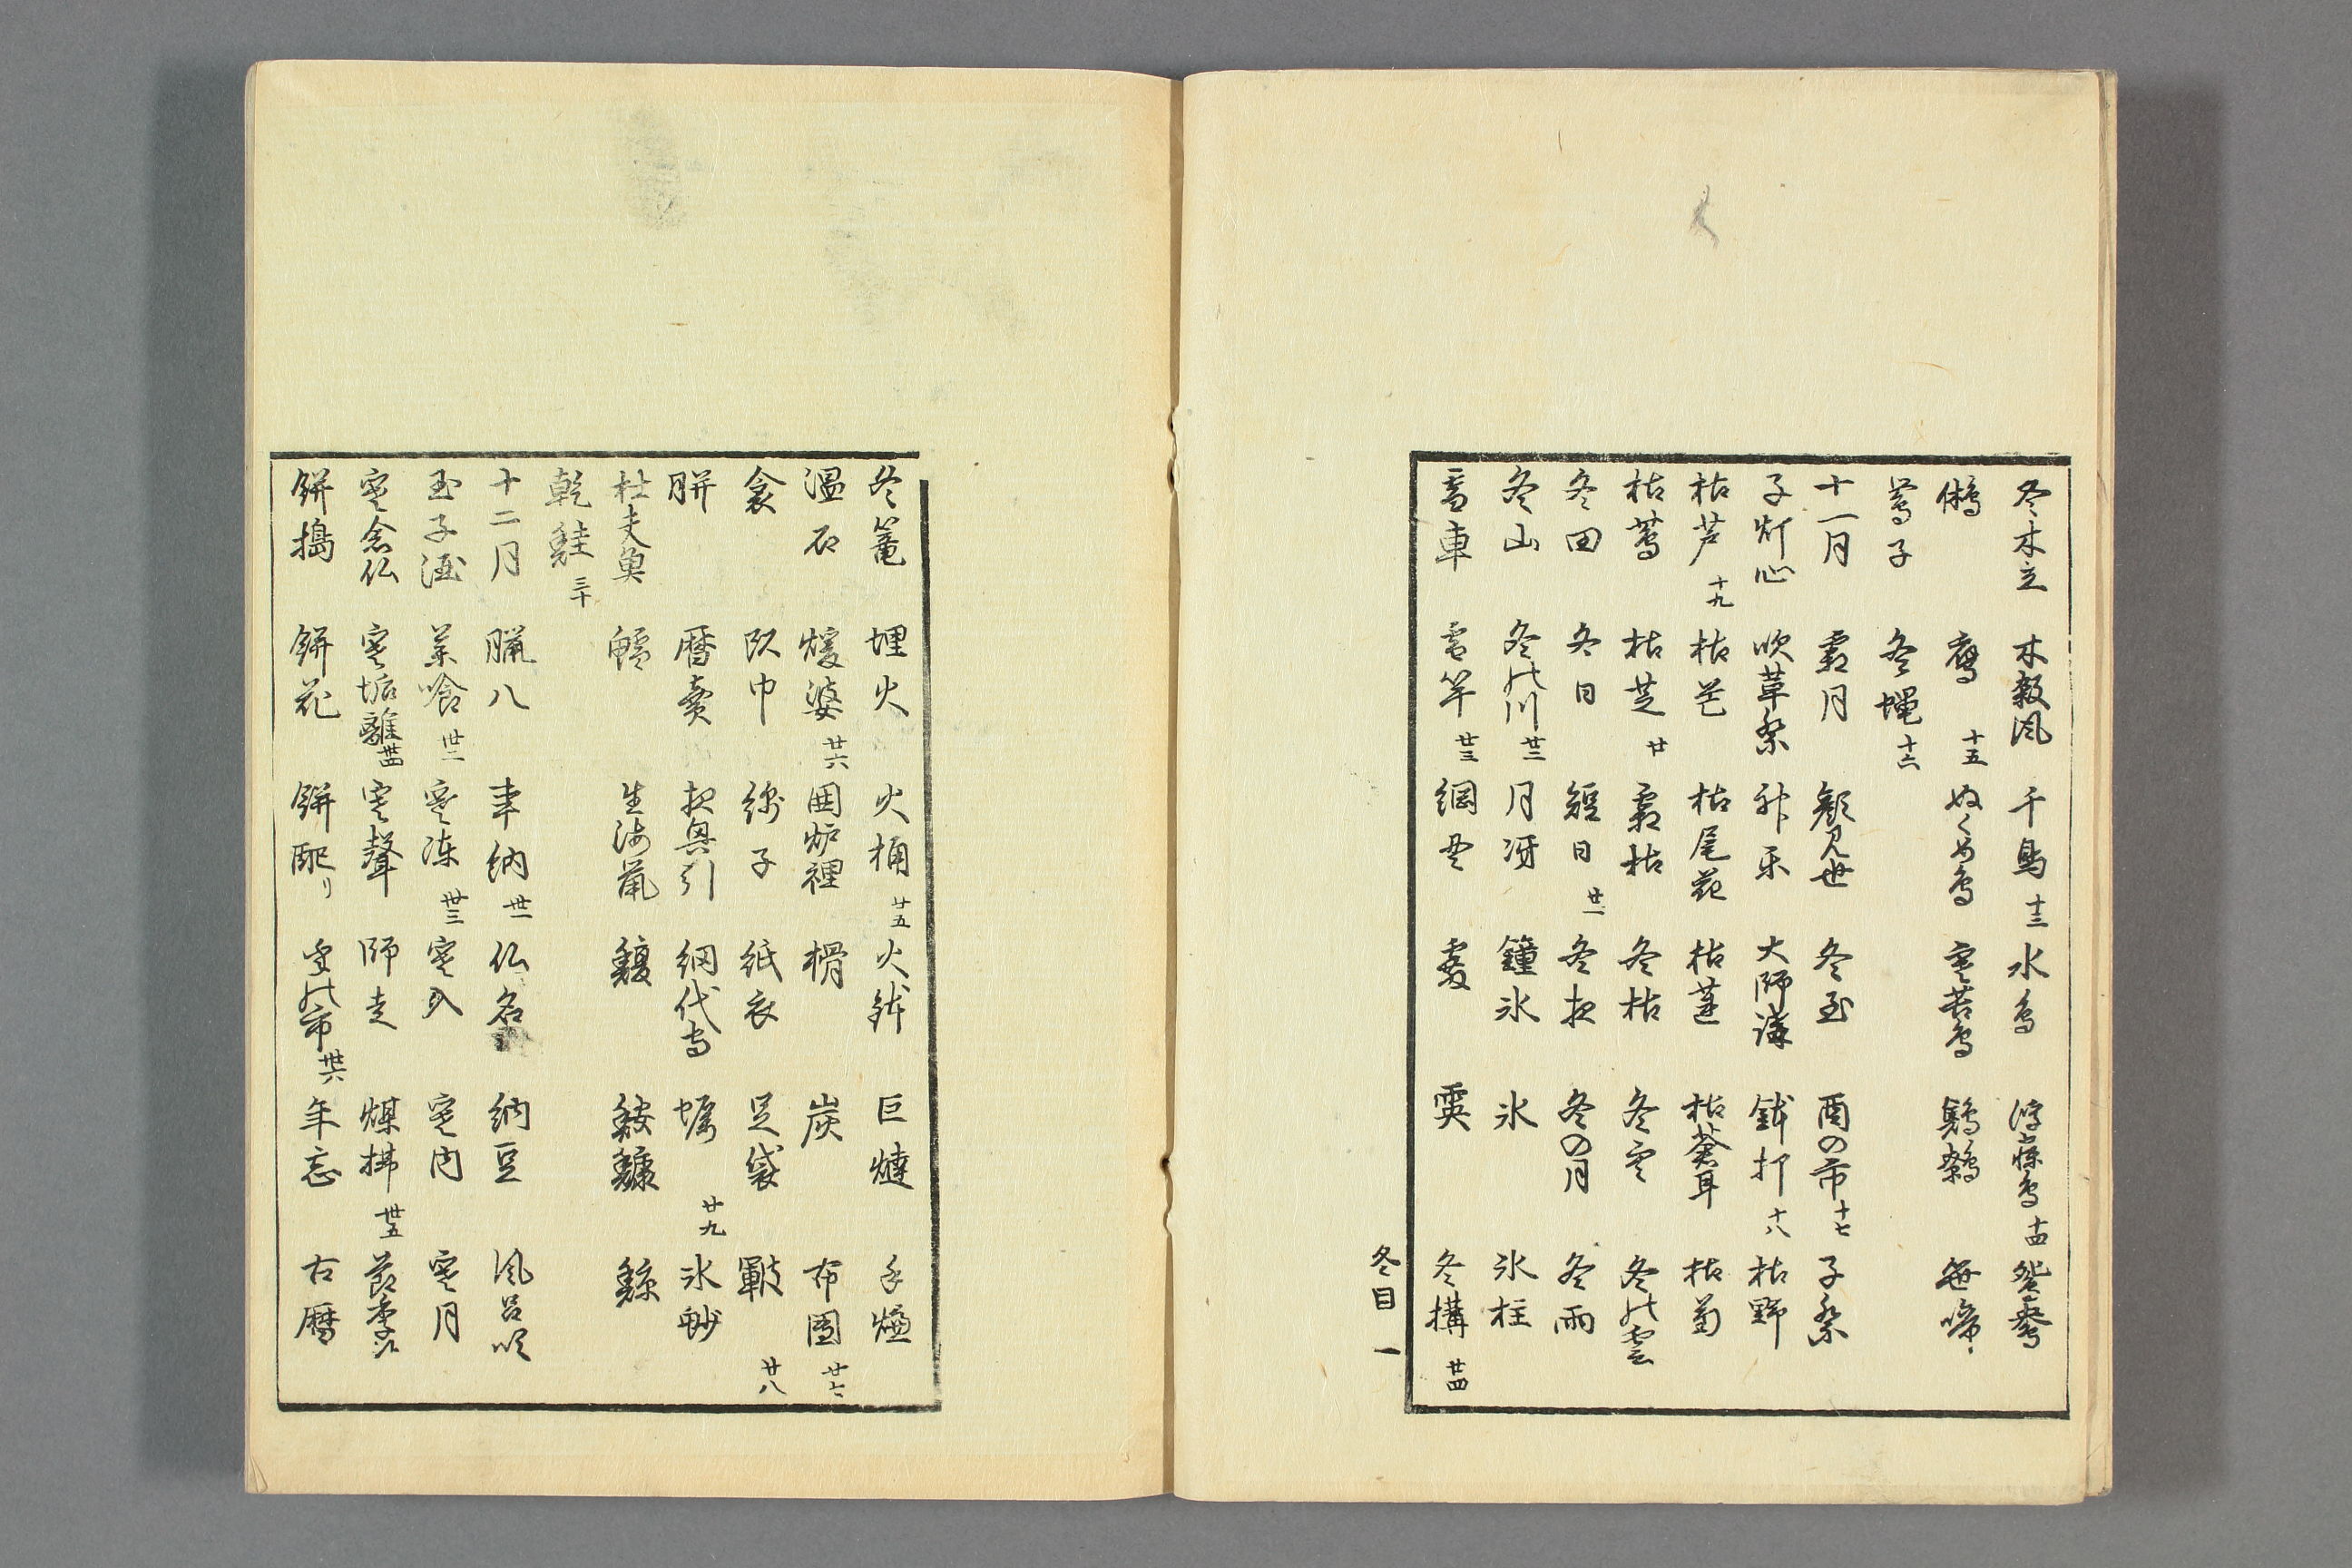 冬木立 木殺風 千鳥 十三 水鳥 浮寐鳥 十四 鴛鴦
鷹 十五 ぬくめ鳥 寒苦鳥 鷦鷯 笹啼
鶯子 冬蠅 十六
十一月 霜月 顔見世 冬至 酉の市 十七 子祭
子灯心 吹革祭 神楽 大師講 鉢打 十八 枯野
枯芦 十九 枯芒 枯尾花 枯蓮 枯蒼耳 枯菊
枯蔦 枯芝 廿 霜枯 冬枯 冬空 冬の雲
冬田 冬日 短日 廿一 冬夜 冬の月 冬雨
冬山 冬の川 廿二 月冴 鐘氷 氷 氷柱
雪車 雪竿 廿三 綱曳 霰 霙 冬構 廿四
冬目 一
冬篭 埋火 火桶 廿五 火鉢 巨燵 手爐
温石 煖婆 廿六 囲炉裡 榾 炭 布團 廿七
衾 頭巾 綿子 紙衣 足袋 皸 廿八
胼 暦売 夜興引 網代守 蠣 廿九 氷魚
杜夫魚 鱈 生海鼠 鰒 鮟鱇 鯨
乾鮭 三十
十二月 臘八 事納 卅一 仏名 納豆 風呂吹
玉子酒 薬喰 卅二 寒凍 卅三 寒入 寒内 寒月
寒念仏 寒垢離 卅四 寒聲 師走 煤拂 卅五 節季候
餅搗 餅花 餅配り 年の市 卅六 年忘 古暦